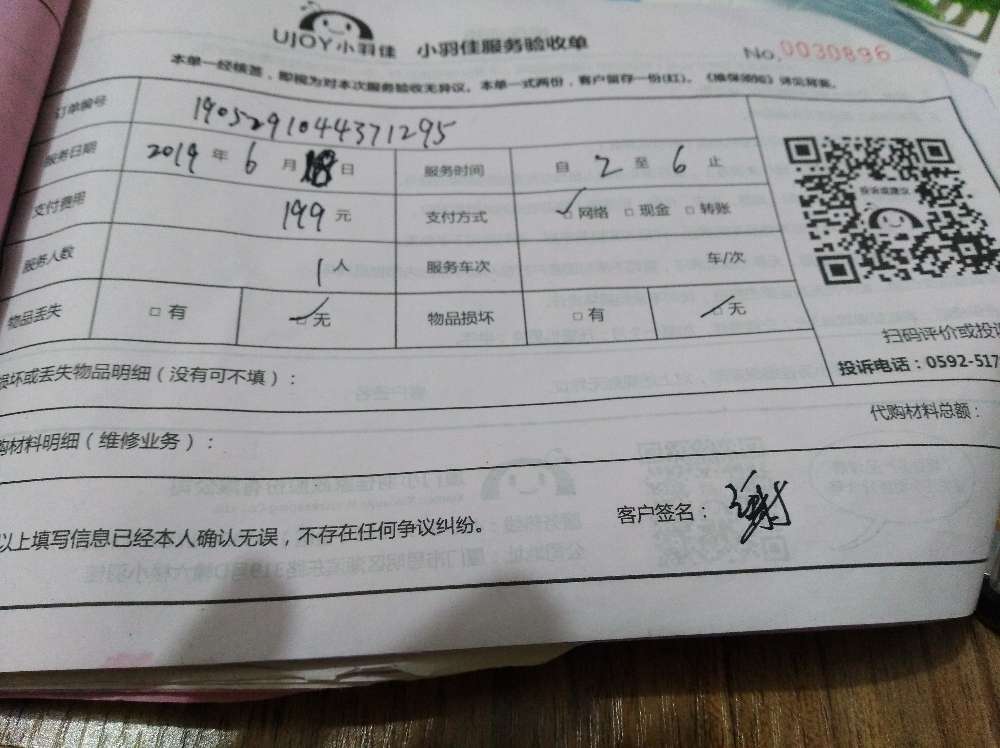 UJOY小羽佳 小羽佳服务验收单 No.0030896
本单一经核签，即视为对本次服务验收无异议。本单一式两份，客户留存一份(红)。《维保须知》详见背面。
订单编号 1905291044371295
服务日期 2019年6月18日 服务时间 自2至6止
支付费用 199元 支付方式 ☑网络 □现金 □转账
服务人数 1人 服务车次 车/次
物品丢失 □有 ☑无 物品损坏 □有 ☑无
投诉或建议
扫码评价或投诉
投诉电话：0592-517
损坏或丢失物品明细（没有可不填）：
代购材料总额：
购材料明细（维修业务）：
以上填写信息已经本人确认无误，不存在任何争议纠纷。 客户签名：谢